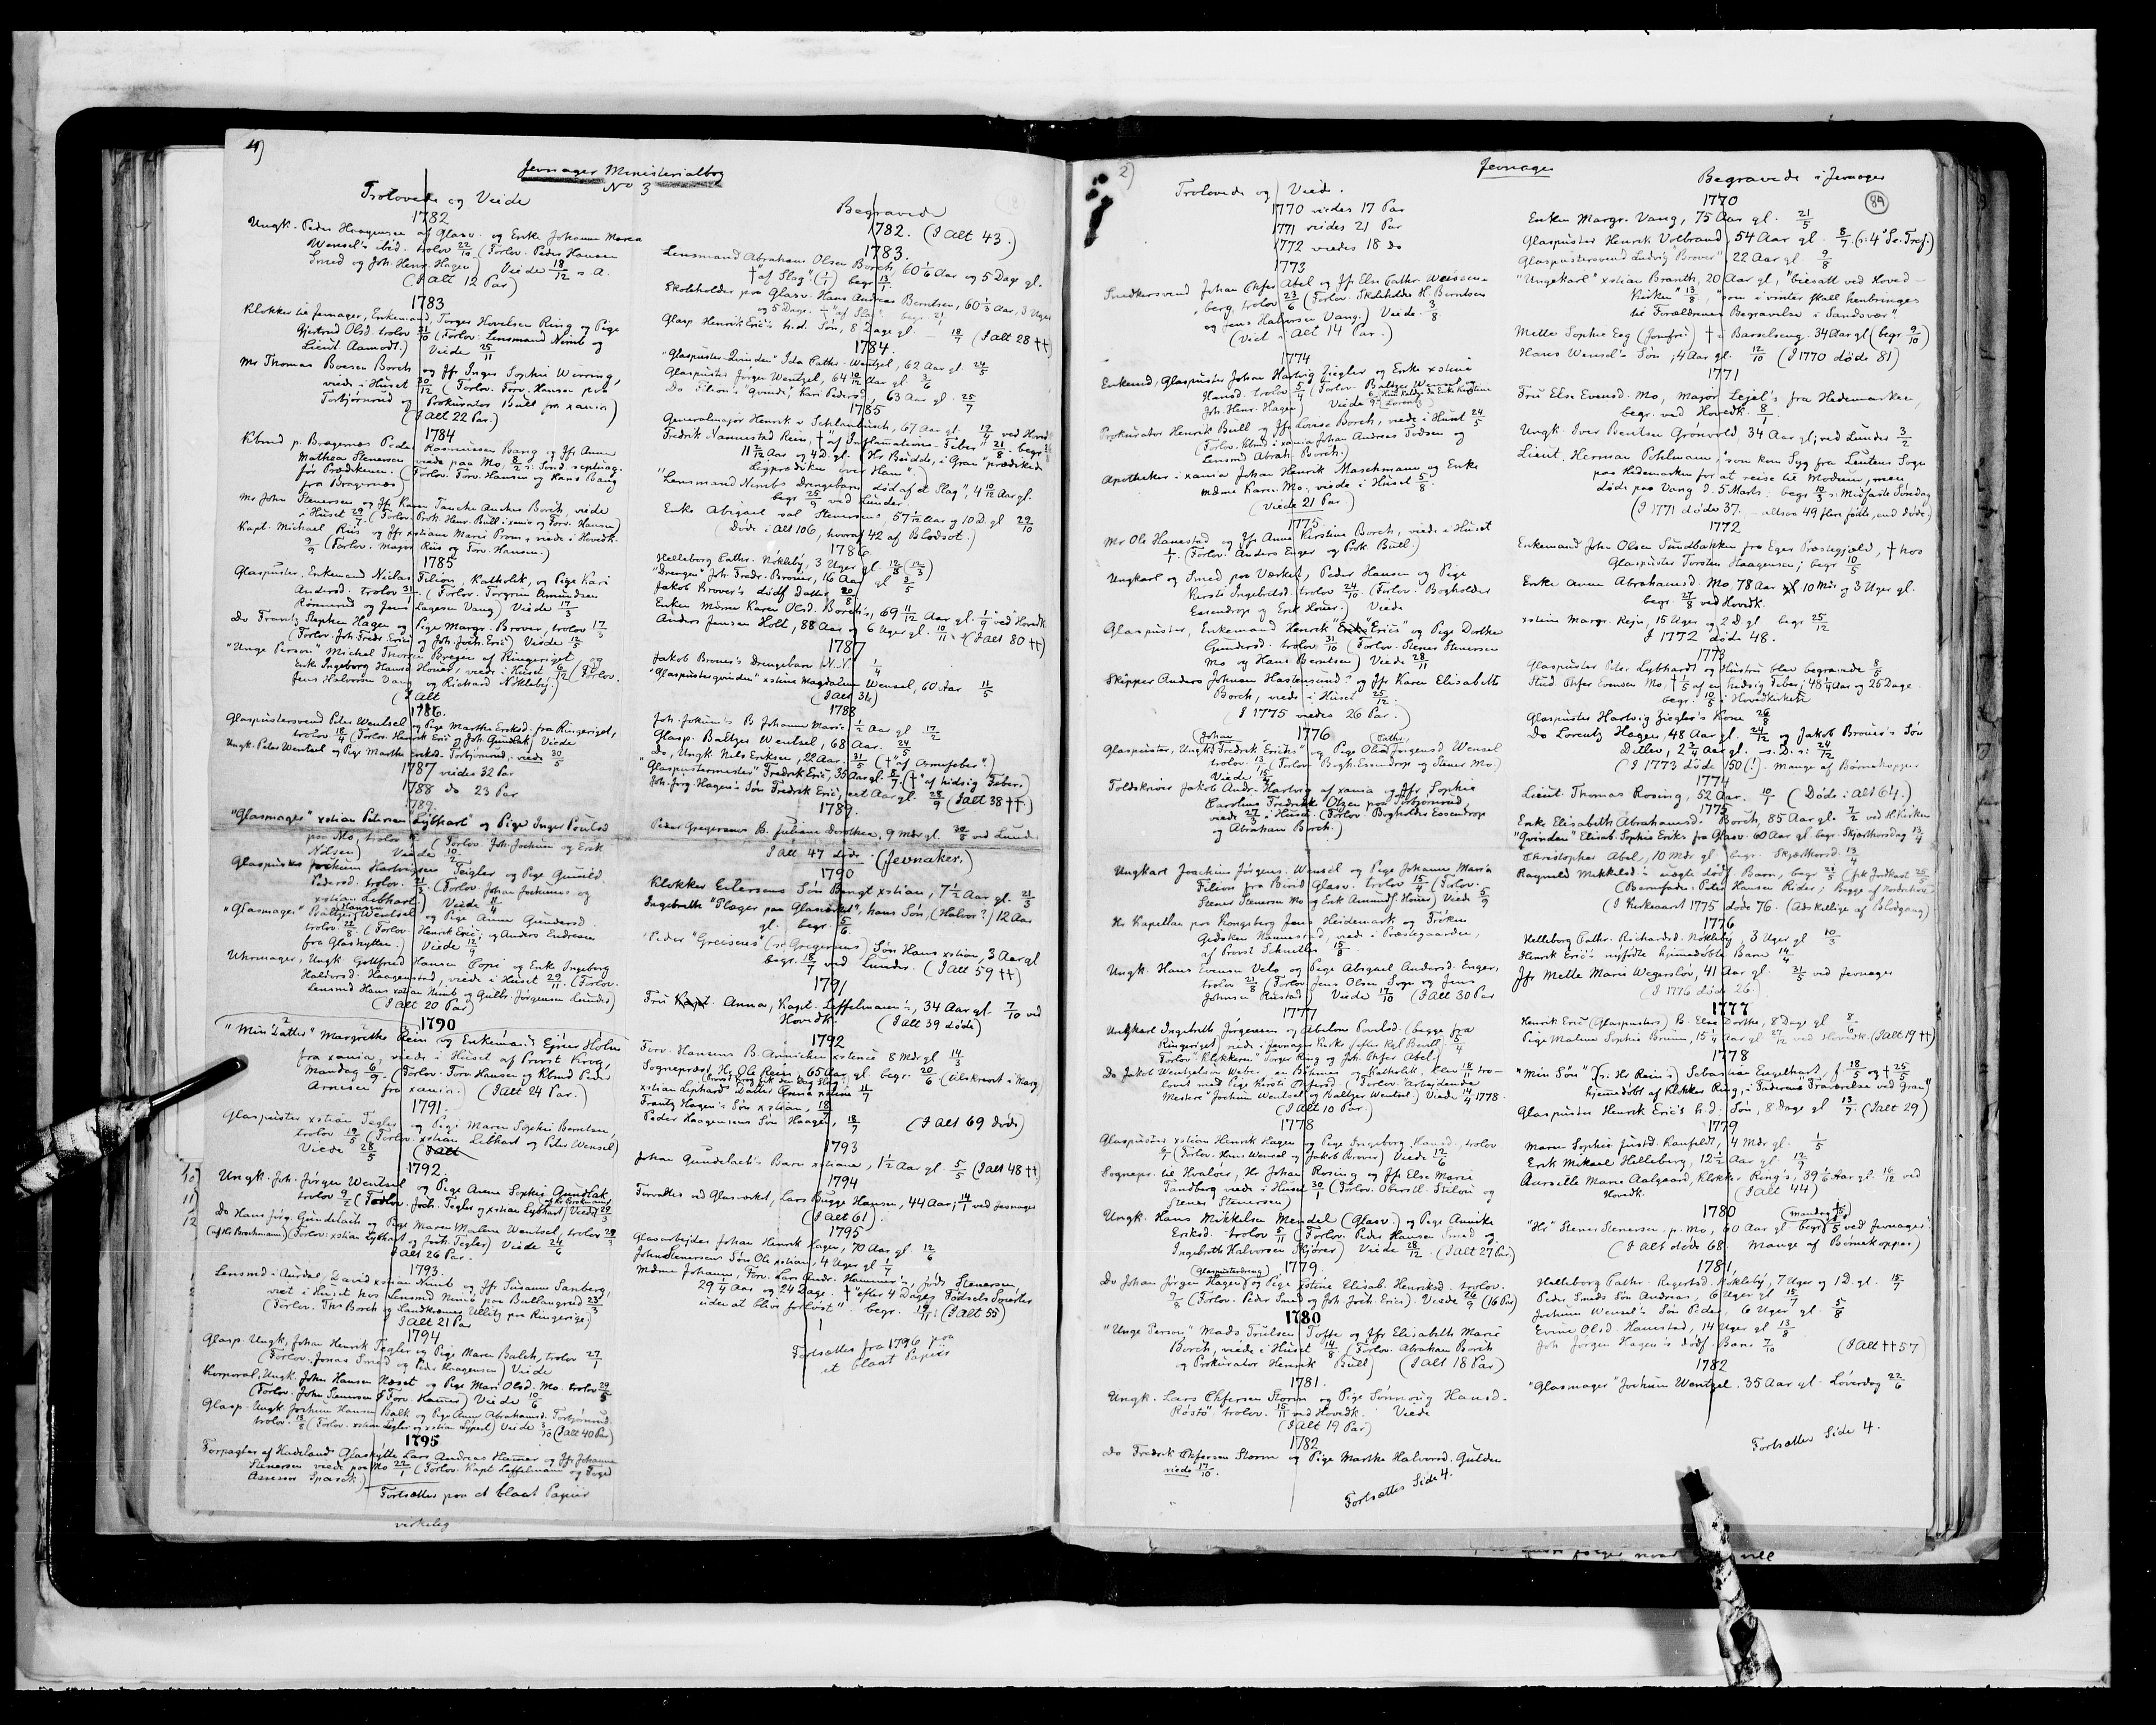 4)
Jevnager Ministerialbog
No 3
Trolovede og Viede
1782
Ungk. Peder Haagensen af Glasv. og Enke Johanne Maria
Wensel's ibid. trolov 22/10 (Forlov. Peder Hansen
Smed og Joh. Henr. Hagen) Viede 18/12 s. A.
(I alt 12 Par)
1783
Klokker til Jevnager, Enkemand, Torger Hovelsen Ring og Pige
Gjertrud Olsd. trolov 31/10 (Forlov. Lensmand Nimb og
Lieut. Aamodt.) Viede 25/11
Mr Thomas Boesen Borch og Jfr Inger Sophie Wirring,
viede i Huset 30/12 (Forlov. Forv. Hansen paa
Torbjørnrud og Prokurator Bull fra xania)
(I alt 22 Par.)
1784
Kbmd p. Bragernæs Peder Rasmussen Bang og Jfr. Anne
Mathea Stenersen viede paa Mo, 8/2 s: Sønd. septuag.
før Prædikenen. (Forlov. Forv. Hansen og Hans Bang
fra Bragernæs)
Mr John Stenersen og Jfr Karen Tanche Anker Borch, viede
i Huset 29/7. (Forlov. Prok. Henr. Bull i xania og Forv. Hansen)
Kapt. Michael Riis og Jfr xstiane Marie Prom, viede i Hovedk.
9/9 (Forlov. Major Riis og Forv. Hansen.)
1785
Glaspuster, Enkemand Niclas Filion, Katholik, og Pige Kari
Andersd. trolov 31/ (Forlov. Torgrim Amundsen
Rønnerud og Jens Lagesen Vang) Viede 17/3
Do Frantz Stephen Hagen og Pige Margr. Brover, trolov 17/3
(Forlov. Joh. Fredr. Eric og Joh. Joch. Eric) Viede 12/5
"Unge Person" Michel Thorsen Bregen af Ringeriget og
Enke Ingeborg Hansd. Houer, viede i Huset 6/12 (Forlov.
Jens Halvorsen Vang og Richard Nøkleby.)
(I Alt
1786.
Glaspustersvend Peter Wentsel og Pige Marthe Eriksd. fra Ringeriget,
trolov 18/4 (Forlov. Henrik Eric og Joh. Gundelak) Viede
Ungk. Peter Wentsel og Pige Marthe Eriksd. Torbjørnrud, viede 30/5
1787 viedes 32 Par
1788 do 23 Par
1789.
"Glasmager" xstian Petersen Lybhart" og Pige Inger Poulsd
paa Mo, trolov (Forlov. Joh. Jochum og Erik
Nilsen) Viede 10/2
Glaspuster Jochum Hartvigsen Teigler og Pige Gunild
Pedersd. trolov. 21/3 (Forlov. Johan Jochumsen og
xstian Lebhart) Viede 11/4
"Glasmager" Baltzer Hansen Wentsel og Pige Anne Gundersd
trolov. 22/8 (Forlov. Henrik Eric; og Anders Endresen
fra Glashytten.) Viede 12/9
Uhrmager, Ungk Gottfried Hansen Copi og Enke Ingeborg
Halvorsd. Haagenstad, viede i Huset 29/11. (Forlov.
Lensmd Hans xstian Nimb og Gulbr. Jørgensen Lunder)
(I Alt 20 Par)
1790
"Min Datter" Margrethe Rein og Enkemand Ejner Holm
fra xania, viede i Huset af Provst Krog,
Mandag 6/9. (Forlov. Forv. Hansen og Kbmd Peder
Arnesen fra xania.) (I Alt 24 Par.)
1791.
Glaspuster xstian Tegler og Pige Maren Sophie Berntsen,
trolov 19/5 (Forlov. xstian Lebhart og Peter Wensel)
Viede 28/5 (I alt
1792.
10) Ungk. Joh. Jørgen Wentsel og Pige Anne Sophie Gundlak
trolov 9/2 (Forlov. Joch. Tegler og xstian Lybhart) Viede 29/3
11 Do Hans Jørg. Gundelach og Pige Maren Malene Wentsel, trolov 29/3
12 (af Hr Brochmann) (Forlov: xstian Lybhart og Joch. Tegler) Viede 24/6
I alt 26 Par.
1793.
Lensmd i Aurdal, David xstian Nimb og Jfr Susann Sanberg,
viet i Huset hos Lensmd Nimb paa Bullangrud 23/3
(Forlov. Ths Borch og Landkræmer Ullitz paa Ringerige)
I alt 21 Par
1794
Glasp. Ungk. Johan Henrik Tegler og Pige Maren Balch, trolov 27/1
(Forlov. Jonas Smed og Peder Haagensen) Viede
Korporal, Ungk. John Hansen Næset og Pige Mari Olsd. Mo. trolov 29/5
(Forlov. John Stenersen & Forv. Hammer) Viede 10/6
Glasp. Ungk. Jochum Hansen Balk og Pige Anne Abrahamsd. Torbjørnrud
trolov. 13/8 (Forlov. xstian Tegler og xstian Lypert) Viede 3/10 (I alt 40 Par)
1795
Forpagter af Hadelands Glashytte Lars Andreas Hammer og Jfr Johanne
Stenersen viede paa Mo 22/1 (Forlov. Kapt Leffelmann og Foged
Assessor Sparok)
Fortsættes paa et blaat Papir
virkelig
Begravede
1782. (I Alt 43.)
1783.
Lensmand Abraham Olsen Borch 60 1/6 Aar og 5 Dage gl.
† "af Slag" (1/1) begr. 13/1
Skoleholder paa Glasv. Hans Andreas Berntsen, 60 1/3 Aar, 3 Uger
og 5 Dage. † "af Slag" begr. 21/1
Glasp Henrik Eric's h.d. Søn, 8 Dage gl. 18/7 (I alt 28 ††)
1784.
"Glaspuster-Qvinden" Ida Cathr. Wentzel, 62 Aar gl. 24/5
Glaspuster Jørgen Wentzel, 64 10/12 Aar gl. 3/6
Do Filion's "Qvinde", Kari Pedersd., 63 Aar gl. 25/7
1785
Generalmajor Henrik v Schlanbusch, 67 Aar gl. 17/4 ved Hovedk
Fredrik Nannestad Rein, † "af Inflamations-Feber" 21/8. begr
11 2/12 Aar og 4 D. gl. (Hr Budde, i Gran "prædiked
Ligprædiken over Ham".)
"Lensmand Nimbs Drengebarn død af et Slag", 4 10/12 Aar gl.
begr 25/9 ved Lunder.
Enke Abigael sal Stenersens, 57 1/12 Aar og 10 D. gl 29/10
(Døde i alt 106, hvoraf 42 af Blodsot.)
1786
Helleborg Cathr. Nøkleby, 3 Uger gl. 12/3 (12/3)
"Drengen" Joh. Fredr. Brover, 16 Aar gl 3/5
Jakob Brover's dødf. Datter 20/8
Enken Mdme Karen Olsd. Borch's, 69 11/12 Aar gl. 1/9 ved Hovedk
Anders Jensen Holt, 88 Aar og 6 Uger gl. 10/11 (I alt 80 ††)
1787
Jakob Brover's Drengebarn N.N. 1/4
"Glaspusterqvinden" xstine Magdalene Wensel, 60 Aar 11/5
(I alt 34)
1788
Joh. Jokum's B Johanne Marie 1/2 Aar gl 17/2
Glasp. Baltzer Wentsel, 68 Aar. 24/5
Do, Ungk Nils Eriksen, 22 Aar. 31/5 († "af Ormefeber".)
"Glaspustermester" Fredrik Eric, 35 Aar gl. 8/7. († "af hidsig Feber.)
Joh. Jørg. Hagen's Søn Fredrik Eric, eet Aar gl. 28/9 (I alt 38 ††)
1789.
Peder Gregersens B. Juliane Dorothea, 9 Mdr gl. 30/8 ved Lunder
I alt 47 døde. (Jevnaker.)
1790
Klokker Eilersens Søn Bengt xstian, 7 1/2 Aar gl. 21/3
Ingebreth "Plæger paa Glasværket", hans Søn, (Halvor?) 12 Aar
gl. begr 5/6.
Peder "Greisens" (s: Gregersens) Søn Hans xstian, 3 Aar gl
begr. 18/7 ved Lunder. (I Alt 59 ††)
1791
Fru Kapt. Anna, Kapt. Leffelmann's, 34 Aar gl. 7/10 ved
Hovedk. (I alt 39 døde)
1792
Forv. Hansens B. Annichen xstence 8 Mdr gl 14/3
Sognepræst Hr Ole Rein, 65 Aar gl. begr. 20/6 (tilskrevet i Marg)
xstian Liphard's Datter Anna xstine 11/7
Frantz Hagen's Søn xstian, 18/7
Peder Haagensens Søn Haagen, 18/7 (I alt 69 døde)
1793
Johan Gundelach's Barn xstiane, 1 1/2 Aar gl. 5/5 (I alt 48 ††)
1794
Forvalter ved Glasværket, Lars Bugge Hansen, 44 Aar, 14/1 ved Jevnager
(I alt 61)
1795
Glasarbejder Johan Henrik Hagen, 70 Aar gl 12/6
John Stenersens Søn Ole xstian, 4 Uger gl 1/7
Mdme Johanne, Forv. Lars Andr. Hammer's, født Stenersen,
29 1/4 Aar og 24 Dage. † "efter 4 Dages Fødsels Smerter
uden at blive forløst" begr. 19/11. (I alt 55)
Fortsættes fra 1796 paa
et blaat Papir
2)
Jevnager
Trolovede og Viede.
1770 viedes 17 Par
1771 viedes 21 Par
1772 viedes 18 do
1773
Snedkersvend Johan Chrfer Abel og Jfr Elen Cathr. Weissen-
berg, trolov 23/6 (Forlov. Skoleholder H. Berntsen
og Jens Halvorsen Vang.) Viede 3/8
(Viet i Alt 14 Par.)
1774
Enkemd, Glaspuster Johan Hartvig Ziegler og Enke xstine
Hansd. trolov 5/4 (Forlov. Baltzer Wensel og
Joh. Henr. Hagen) Viede
Prokurator Henrik Bull og Jfr Lovise Borch, viede i Huset 24/5
(Forlov. Kbmd i xania Johan Andreas Todsen og
Lensmd Abrah. Borch.)
Apotheker i xania Johan Henrik Maschmann og Enke
Mdme Karen Mo, viede i Huset 5/8.
(Viede 21 Par)
1775
Mr Ole Hanestad og Jfr Anne Kirstine Borch, viede i Huset
(Forlov. Anders Enger og Prok. Bull.)
Ungkarl og Smed paa Værket, Peder Hansen og Pige
Kirsti Ingebretsd. trolov 24/10. (Forlov. Bogholder
Essendrop og Erik Houer.) Viede
Glaspuster, Enkemand Henrik "Eriks" "Eric's" og Pige Dorthe
Gundersd. trolov 31/10 (Forlov. Stener Stenersen
Mo og Hans Berntsen) Viede 28/11
Skipper Anders Johnsen Hastensund? og Jfr Karen Elisabeth
Borch, viede i Huset 25/12.
(I 1775 viedes 26 Par.)
1776
Glaspuster, Ungk. Johan Fredrik Eriks" og Pige Olea Cathr. Jørgensd Wensel
trolov 13/1 (Forlov. Bogh. Essendrop og Stener Mo.)
Viede 15/4
Toldskriver Jakob Andr. Hartvig af xania og Jfr Sophie
Caroline Fredrikke Olsen paa Torbjørnrud,
viede 27/3 i Huset (Forlov. Bogholder Essendrop
og Abraham Borch.)
Ungkarl Joachim Jørgens. Wensel og Pige Johanne Maria
Filion fra Birid Glasv. trolov 15/4 (Forlov.
Stener Stenersen Mo og Erik Amunds. Houer) Viede 5/9
Hr Kapellan paa Kongsberg Jens Heidemark og Frøken
Gedsken Nannestad, viede i Præstegaarden,
af Provst Schnitler 15/8
Ungk. Hans Evensen Velo og Pige Abigael Andersd. Enger,
trolov 21/8 (Forlov. Jens Olsen Sogn og Jens
Johnsen Rustad) Viede 17/10 (I alt 30 Par
1777
Ungkarl Ingebreth Jørgensen og Abelone Povelsd. (begge fra
Ringeriget) viede i Jevnager Kirke efter Kgl Bevill. 5/4
Forlov "Klokkeren" Torger Ring og Joh. Chfer Abel.
Do Jakob Wentzelsøn Weber en Bøhmer og Katholik. blev 18/11 tro-
lovet med Pige Kirsti Chferd. (Forlov. "Arbejdende
Mestere" Jochim Wentsel og Baltzer Wentsel.) Viede 14/4 1778.
(I Alt 10 Par)
1778
Glaspuster xstian Henrik Hagen og Pige Ingeborg Hansd. trolov
(Forlov. Hans Wensel og Jakob Brover) Viede 12/6
Sognepr. til Hvaløer, Hr Johan Rosing og Jfr Else Marie
Tandberg viede i Huset 30/1 (Forlov. Oberstl. Stilou og
Stener Stenersen)
Ungk. Hans Mikkelsen Mendel (Glasv.) og Pige Annike
Eriksd. trolov 5/11 (Forlov. Peder Hansen Smed og
Ingebreth Halvorsen Skjører) Viede 28/12. (I alt 27 Par)
1779.
Do Johan Jørgen Hagen (Glaspusterdreng) og Pige xstine Elisab. Henriksd. trolov.
9/8 (Forlov. Peder Smed og Joh. Joch. Eric) Viede 26/9 (16 Par)
1780
"Unge Person" Mads Truelsen Toffte og Jfr Elisabeth Marie
Borch, viede i Huset 14/8 (Forlov. Abraham Borch
og Prokurator Henrik Bull) (I alt 18 Par)
1781.
Ungk. Lars Chfersen Storm og Pige Sønnoug Hansd.
Røstø" trolov. 15/11 ved Hovedk. Viede
(I alt 19 Par)
1782
Do Fredrik Chfersen Storm og Pige Marthe Halvorsd. Gulden
viede 17/10.
Fortsættes Side 4.
Begravede i Jevnager
89
1770
Enken Margr. Vang, 75 Aar gl. 21/5
Glaspuster Henrik Volbrand, 54 Aar gl. 8/7. (s: 4 S. Tref.)
Glaspustersvend Ludvig "Brover" 22 Aar gl 9/8
"Ungekarl" xstian Branth, 20 Aar gl, "biesatt ved Hoved-
kirken" 13/8, "som i vinter skall henbringes
til Forældrenes Begravelse i Sandsvær"
Mette Sophie Eeg (Jomfru) † i Barselseng. 34 Aar gl (begr 9/10)
Hans Wensel's Søn, 4 Aar gl. 12/10 (I 1770 døde 81)
1771
Fru Else Evensd. Mo, Major Lejel's fra Hedemarken,
begr. ved Hovedk. 8/1.
Ungk. Iver Bentsen Grønvold, 34 Aar gl; ved Lunder 3/2
Lieut. Herman Pohlmann, "som kom Syg fra Leutens Sogn
paa Hedemarken for at reise til Modum, men
døde paa Vang d. 5 Marts. begr. 10/3 s: Midfaste Søndag
(I 1771 døde 37. - altsaa 49 flere fødte, end døde.)
1772
Enkemand John Olsen Sundbakken fra Eger Præstegjæld, † hos
Glaspuster Torsten Haagensen; begr 10/5
Enke Anne Abrahamsd. Mo, 78 Aar 10 Mdr og 3 Uger gl.
begr. 27/8 ved Hovedk.
xstine Margr. Rejn, 15 Uger og 2 D gl begr 25/12
I 1772 døde 48.
1773
Glaspuster Peter Lybhardt og Hustru blev begravede 8/5
Stud Chfer Evensen Mo. † 1/5 af en hidsig Feber; 48 1/4 Aar og 25 Dage
begr. 10/5 i Hovedkirken
Glaspuster Hartvig Ziegler's Kone 26/8
Do Lorentz Hagen, 48 Aar gl. 24/12 og Jakob Brover's Søn
Ditlev, 2 3/4 Aar gl. s. D. s: 24/12
(I 1773 døde 150 (!) Mange af Børnekopper
1774
Lieut. Thomas Rosing, 52 Aar. 10/1 (Døde i alt 64.)
1775
Enke Elisabeth Abrahamsd. Borch, 85 Aar gl. 7/2 ved H.Kirken
"Qvinden" Elisab. Sophia Eriks fra Glasv. 60 Aar gl begr. Skjærthorsdag 13/4
Christopher Abel, 10 Mdr gl. begr. Skjærthorsd. 13/4
Ragnild Mikkelsd's uægte dødf Barn, begr 21/5 (fik Jordkast 25/5
(Barnefader Peter Hansen Rider; begge af Nordenhov)
(I Kirkeaaret 1775 døde 76. (Adskillige af Blodgang)
1776
Helleborg Cathr. Richardsd. Nøkleby, 3 Uger gl 10/3
Henrik Eric's nyfødte hjemmedøbte Barn 14/4
Jfr Mette Marie Wegersløv, 41 Aar gl. 31/5 ved Jevnager
(I 1776 døde 26.)
1777
Henrik Eric (Glaspusters) B. Else Dorthe, 8 Dage gl 8/6
Pige Malene Sophie Bruun, 15 1/4 Aar gl 27/12 ved Hovedk. (I alt 19 ††)
1778
"Min Søn" (s: Hr Rein's) Sebastian Engelhart, f 18/5 og † 25/5
hjemmedøbt af Klokker Ring, i Faderens Fraværelse ved Gran"
Glaspuster Henrik Eric's h.d. Søn, 8 Dage gl 13/7. (I alt 29)
1779
Maren Sophie Justsd. Ranfeldt, 4 Mdr gl. 1/5
Erik Mikael Helleberg, 12 1/2 Aar gl. 12/9
Aurselle Marie Aalgaard, Klokker Ring's, 39 1/6 Aar gl. 16/12 ved
Hovedk. (I alt 44)
1780
"Hr" Stener Stenersen, p. Mo, 60 Aar gl begr (Mandag) 15/5 ved Jevnager
(I alt døde 68. Mange af Børnekopper)
1781,
Helleborg Cathr. Regertsd. Nøkleby, 7 Uger og 1 D. gl. 15/7
Peder Smids Søn Andreas, 6 Uger gl 15/7
Jochum Wensel's Søn Peder, 6 Uger gl. 5/8
Evine Olsd. Hanestad, 14 Uger gl 13/8
Joh Jørgen Hagen's dødf. Barn 7/10 (I alt †† 57)
1782
"Glasmager" Jochum Wentzel. 35 Aar gl. Løverdag 22/6
Fortsættes Side 4.